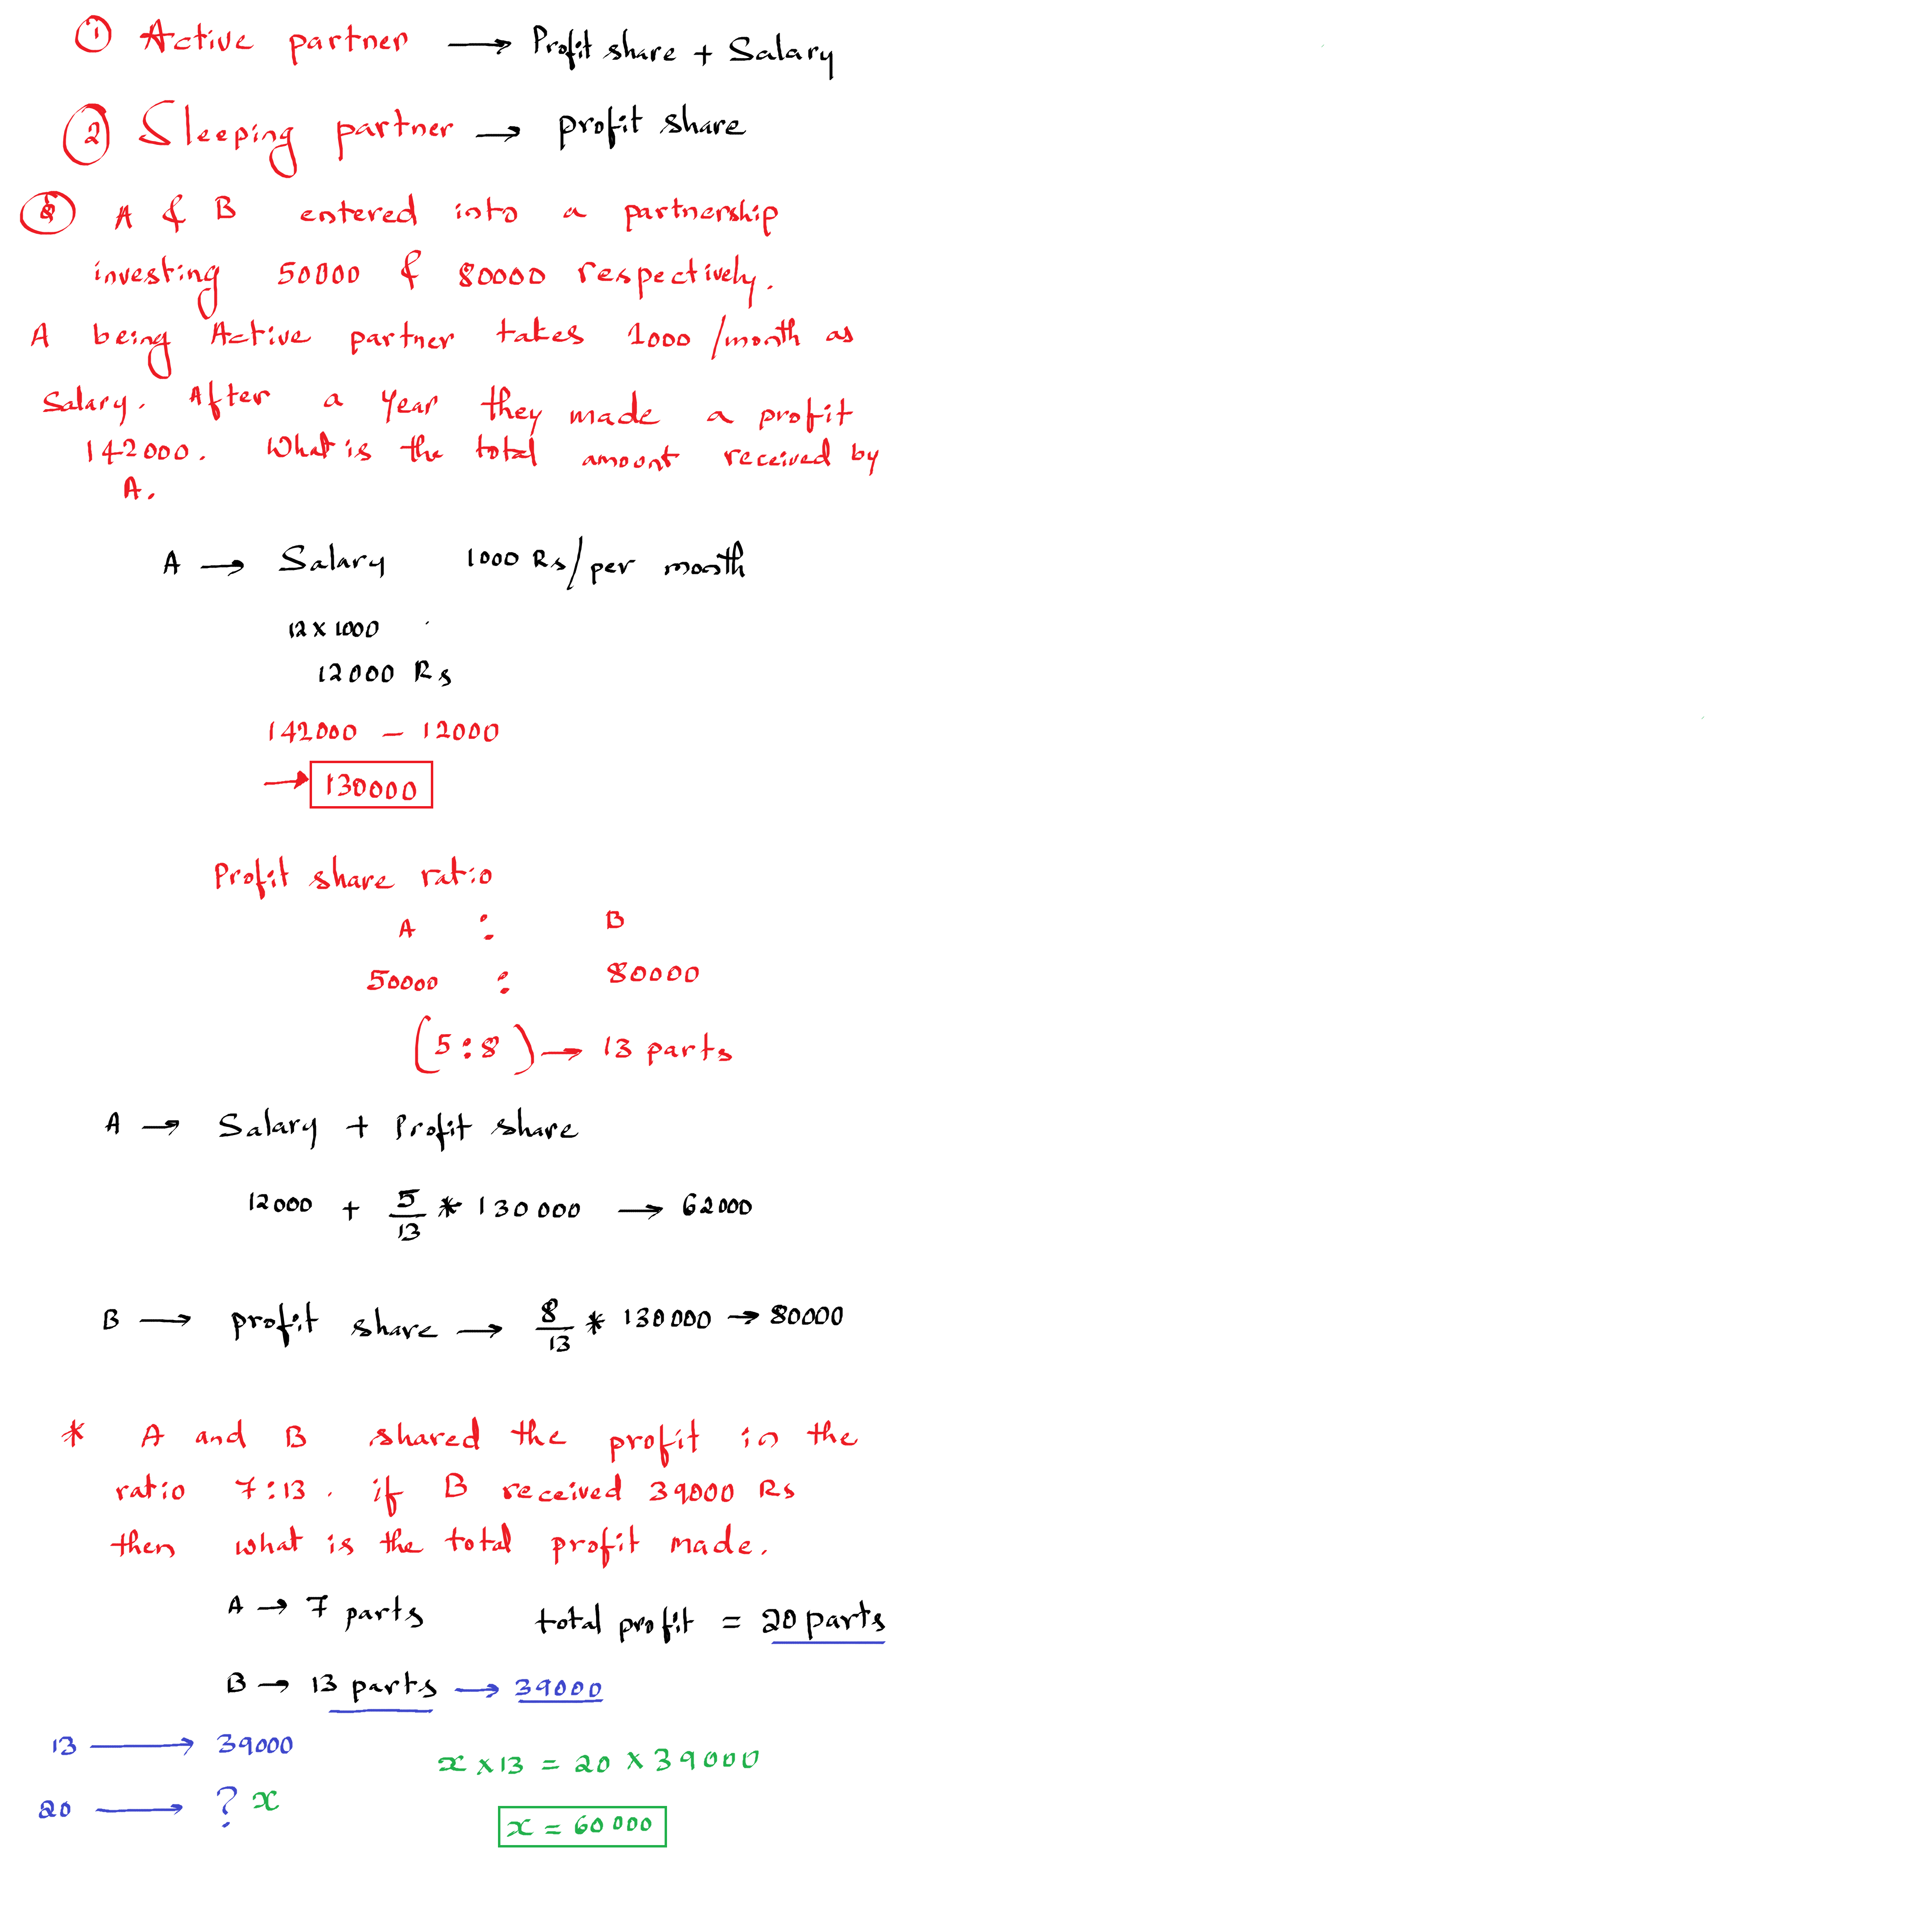 ① Active partner → Profit share + Salary
② Sleeping partner → profit share
A & B entered into a partnership
investing 50000 & 80000 respectively.
A being Active partner takes 1000 /month as
Salary. After a year they made a profit
142000. What is the total amount received by
A.
A → Salary 1000 Rs/per month
12 x 1000
12000 Rs
142000 - 12000
→ 130000
Profit share ratio
A : B
50000 : 80000
(5:8) → 13 parts
A → Salary + Profit share
12000 + 5/13 * 130000 → 62000
B → profit share → 8/13 * 130000 → 80000
* A and B shared the profit in the
ratio 7:13. if B received 39000 Rs
then what is the total profit made.
A → 7 parts total profit = 20 parts
B → 13 parts → 39000
13 → 39000
x x 13 = 20 x 39000
20 → ? x
x = 60000